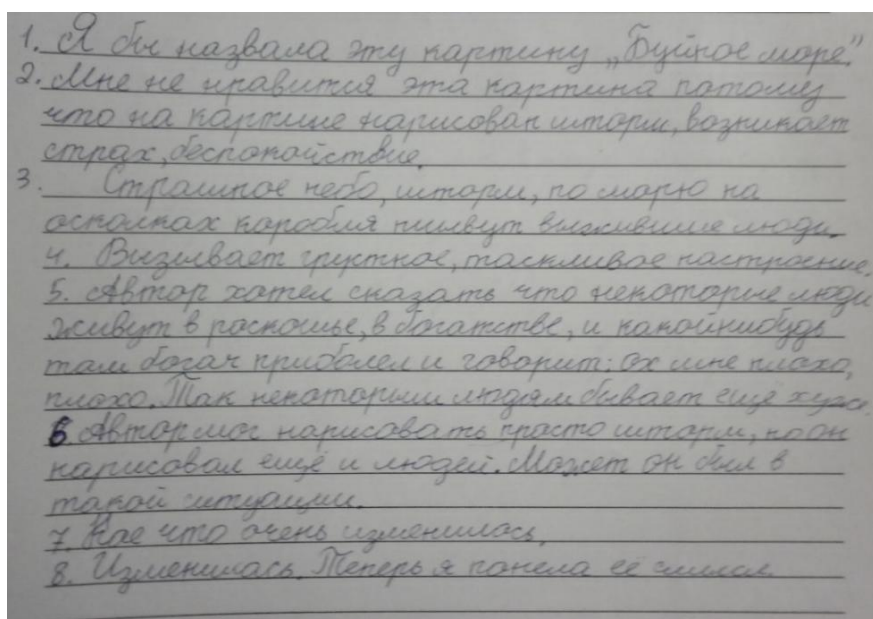 1. Я бы назвала эту картину „Буйное море".
2. Мне не нравится эта картина потому
что на картине нарисован шторм, возникает
страх, беспокойствие.
3. Страшное небо, шторм, по морю на
осколках коробля плывут выжившие люди.
4. Вызывает грустное, таскливое настроение.
5. Автор хотел сказать что некоторые люди
живут в роскошье, в богатстве, и какойнибудь
там богач приболел и говорит: ох мне плохо,
плохо. Так некоторым людям бывает ещё хуже.
6 Автор мог нарисовать просто шторм, но он
нарисовал ещё и людей. Может он был в
такой ситуации.
7. Кое что очень изменилось.
8. Изменилась. Теперь я понела её смысл